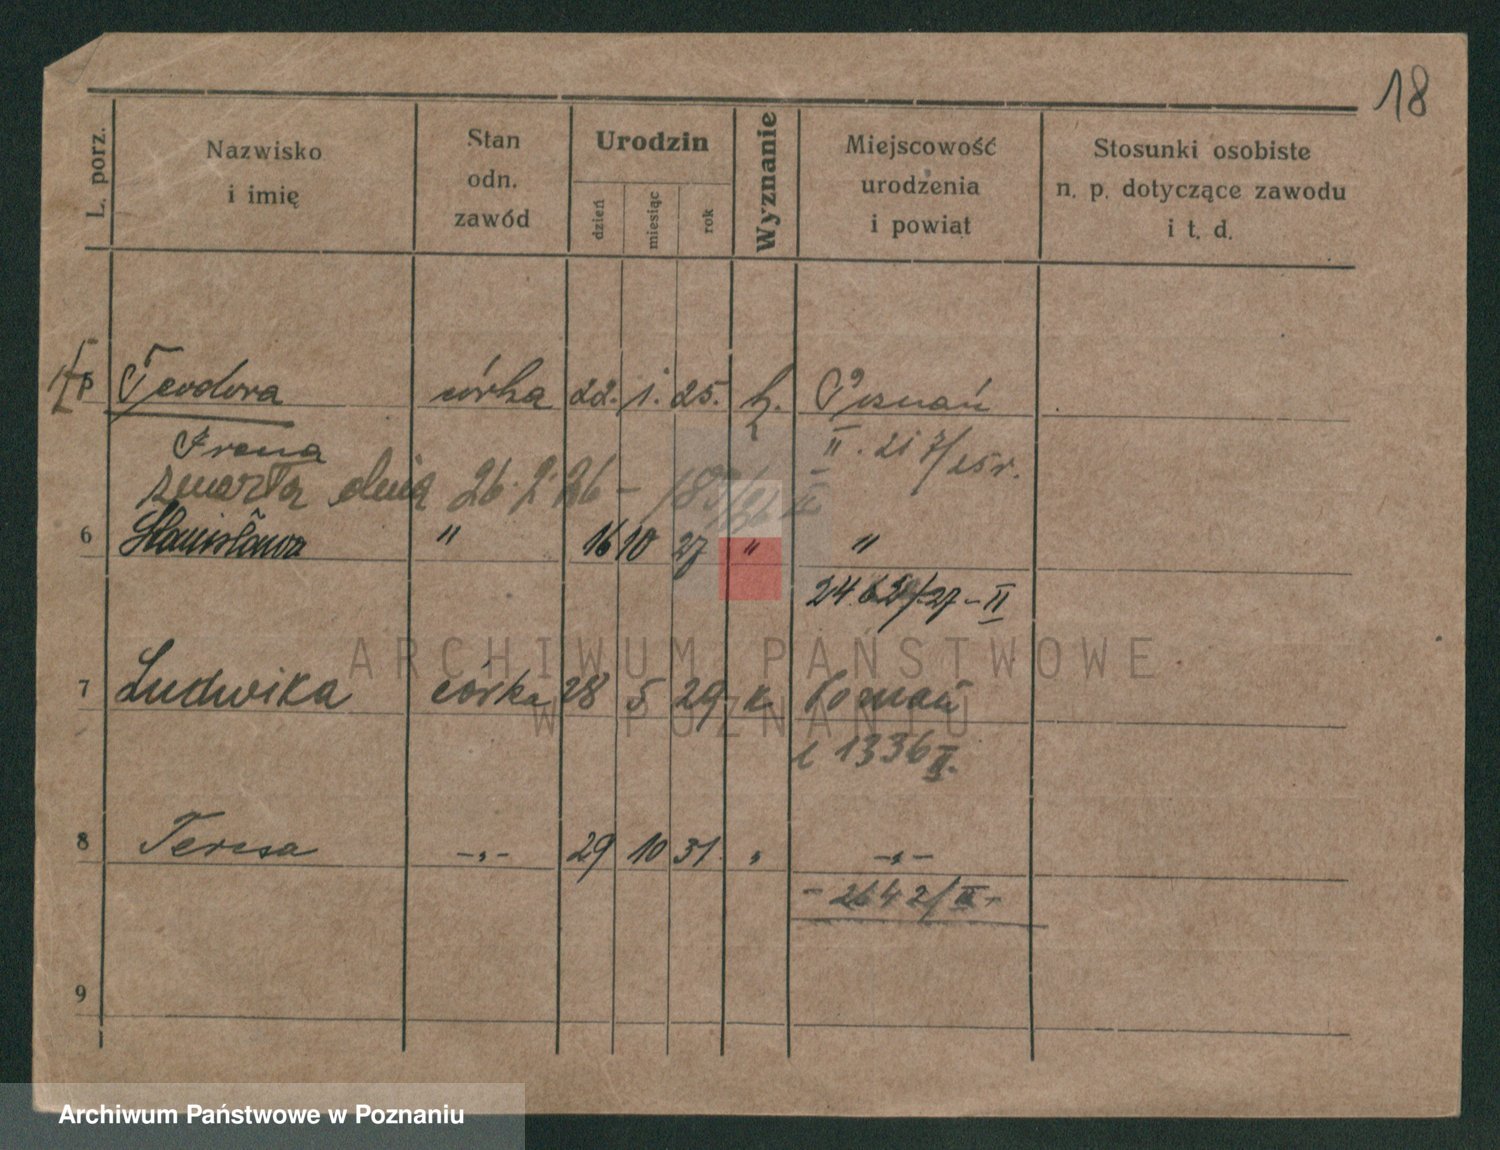 18
L. porz.
Nazwisko
i imię
Stan
odn.
zawód
Urodzin
dzień
miesiąc
rok
Wyznanie
Miejscowość
urodzenia
i powiat
Stosunki osobiste
n. p. dotyczące zawodu
i t. d.
5 Teodora córka 22. 1. 25. k. Poznań
Irena
II. 217/25r.
zmarła dnia 26.2.26 –
6 Stanisława " 16 10 27 " "
/27 – II
7 Ludwika córka 28 5 29 k. Poznań
1336 II.
8 Teresa -„- 29 10 31. „ -„-
- 2642/III -
9
ARCHIWUM PAŃSTWOWE
W POZNANIU
Archiwum Państwowe w Poznaniu